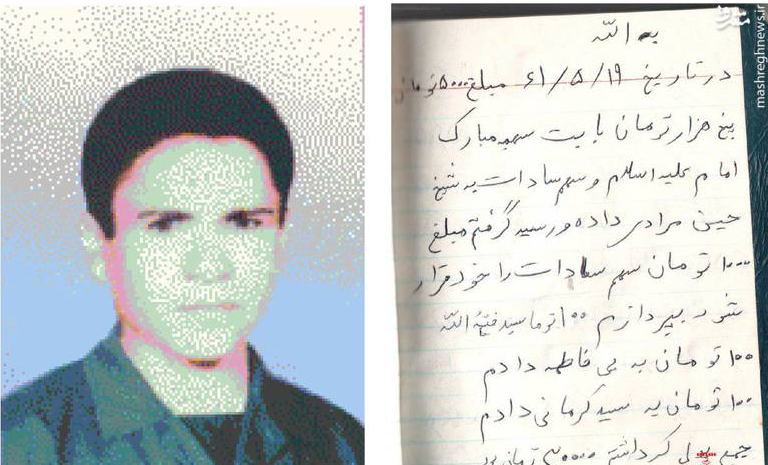 به الله
در تاریخ ۶۱/۵/۱۹ مبلغ ۵۰۰۰ تومان
پنج هزار تومان بابت سهم مبارک
امام علیه اسلام و سهم سادات به شیخ
حسین مرادی داده و رسید گرفتم مبلغ
۱۰۰۰ تومان سهم سادات را خود قرار
شود بپردازم ۱۰۰ توما سید فتح الله
۱۰۰ تومان به بی فاطمه دادم
۱۰۰ تومان به سید کرمانی دادم
جمع پولی
mashreghnews.ir